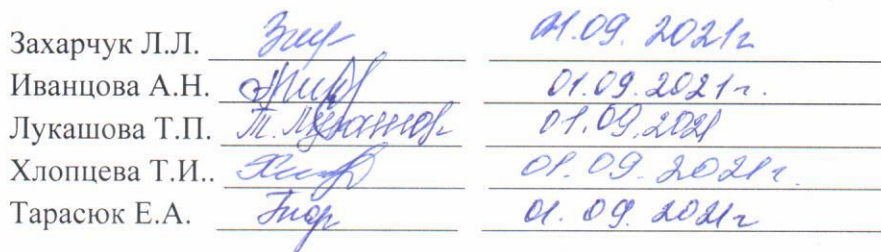 Захарчук Л.Л. 01.09.2021г
Иванцова А.Н. 01.09.2021г.
Лукашова Т.П. Т. Лукашова 01.09.2021
Хлопцева Т.И.. 01.09.2021г.
Тарасюк Е.А. 01.09.2021г